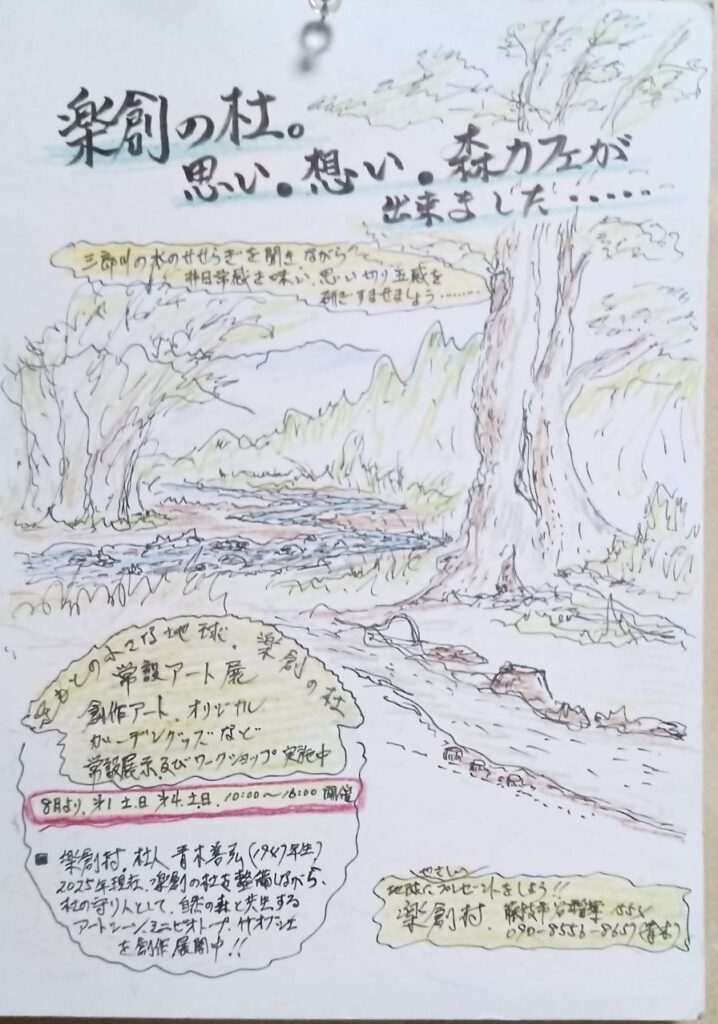 楽創の杜。
思い。想い。森カフェが
出来ました.....
三郎川の水のせせらぎを聞きながら
非日常感を味い、思い切り五感を
研ぎすませましょう......
水で 地球、楽創の杜
常設アート展
創作アート、オリジナル
ガーデングッズなど
常設展示及びワークショップ実施中
8月より、第1土日 第4土日、10:00〜16:00 開催
■ 楽創村、杜人 青木善弘(1947年生)
2025年現在、楽創の杜を整備しながら、
杜の守り人として、自然の森と共生する
アートシーン、ミニビオトープ、竹オブジェ
を創作展開中!!
やさしい
地球にプレゼントをしよう!!
楽創村、藤枝市谷稲葉555
090-8556-8657(青木)